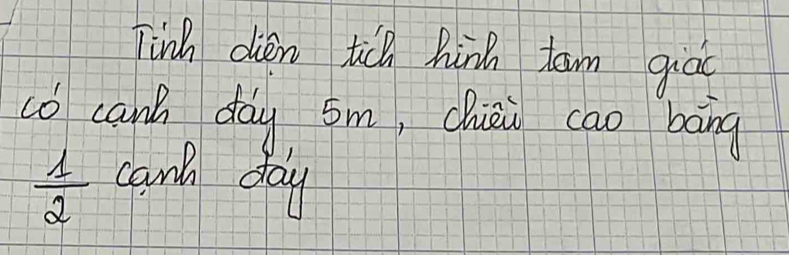 Tính diện tích hình tam giác
có cạnh đáy 5m, chiều cao bằng
1/2 cạnh đáy